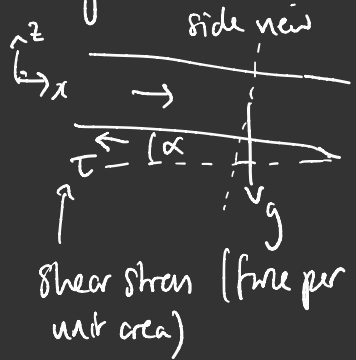 side view
z
x
α
τ
g
shear stress (force per
unit area)